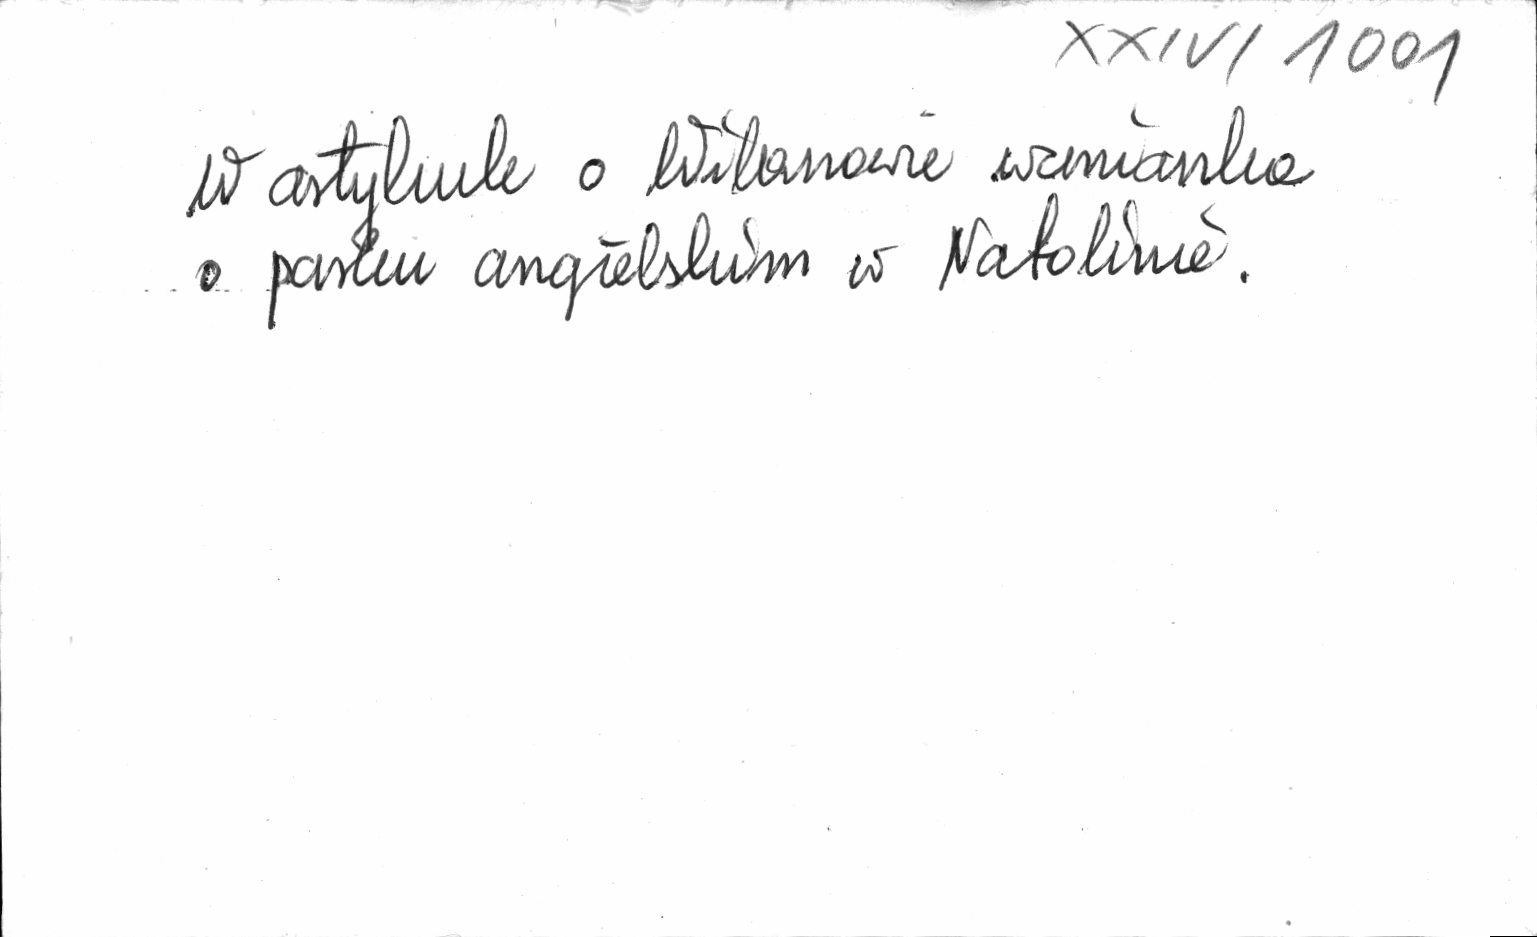 XXIV/1001
W artykule o Wilanowie wzmianka
o parku angielskim w Natolinie.